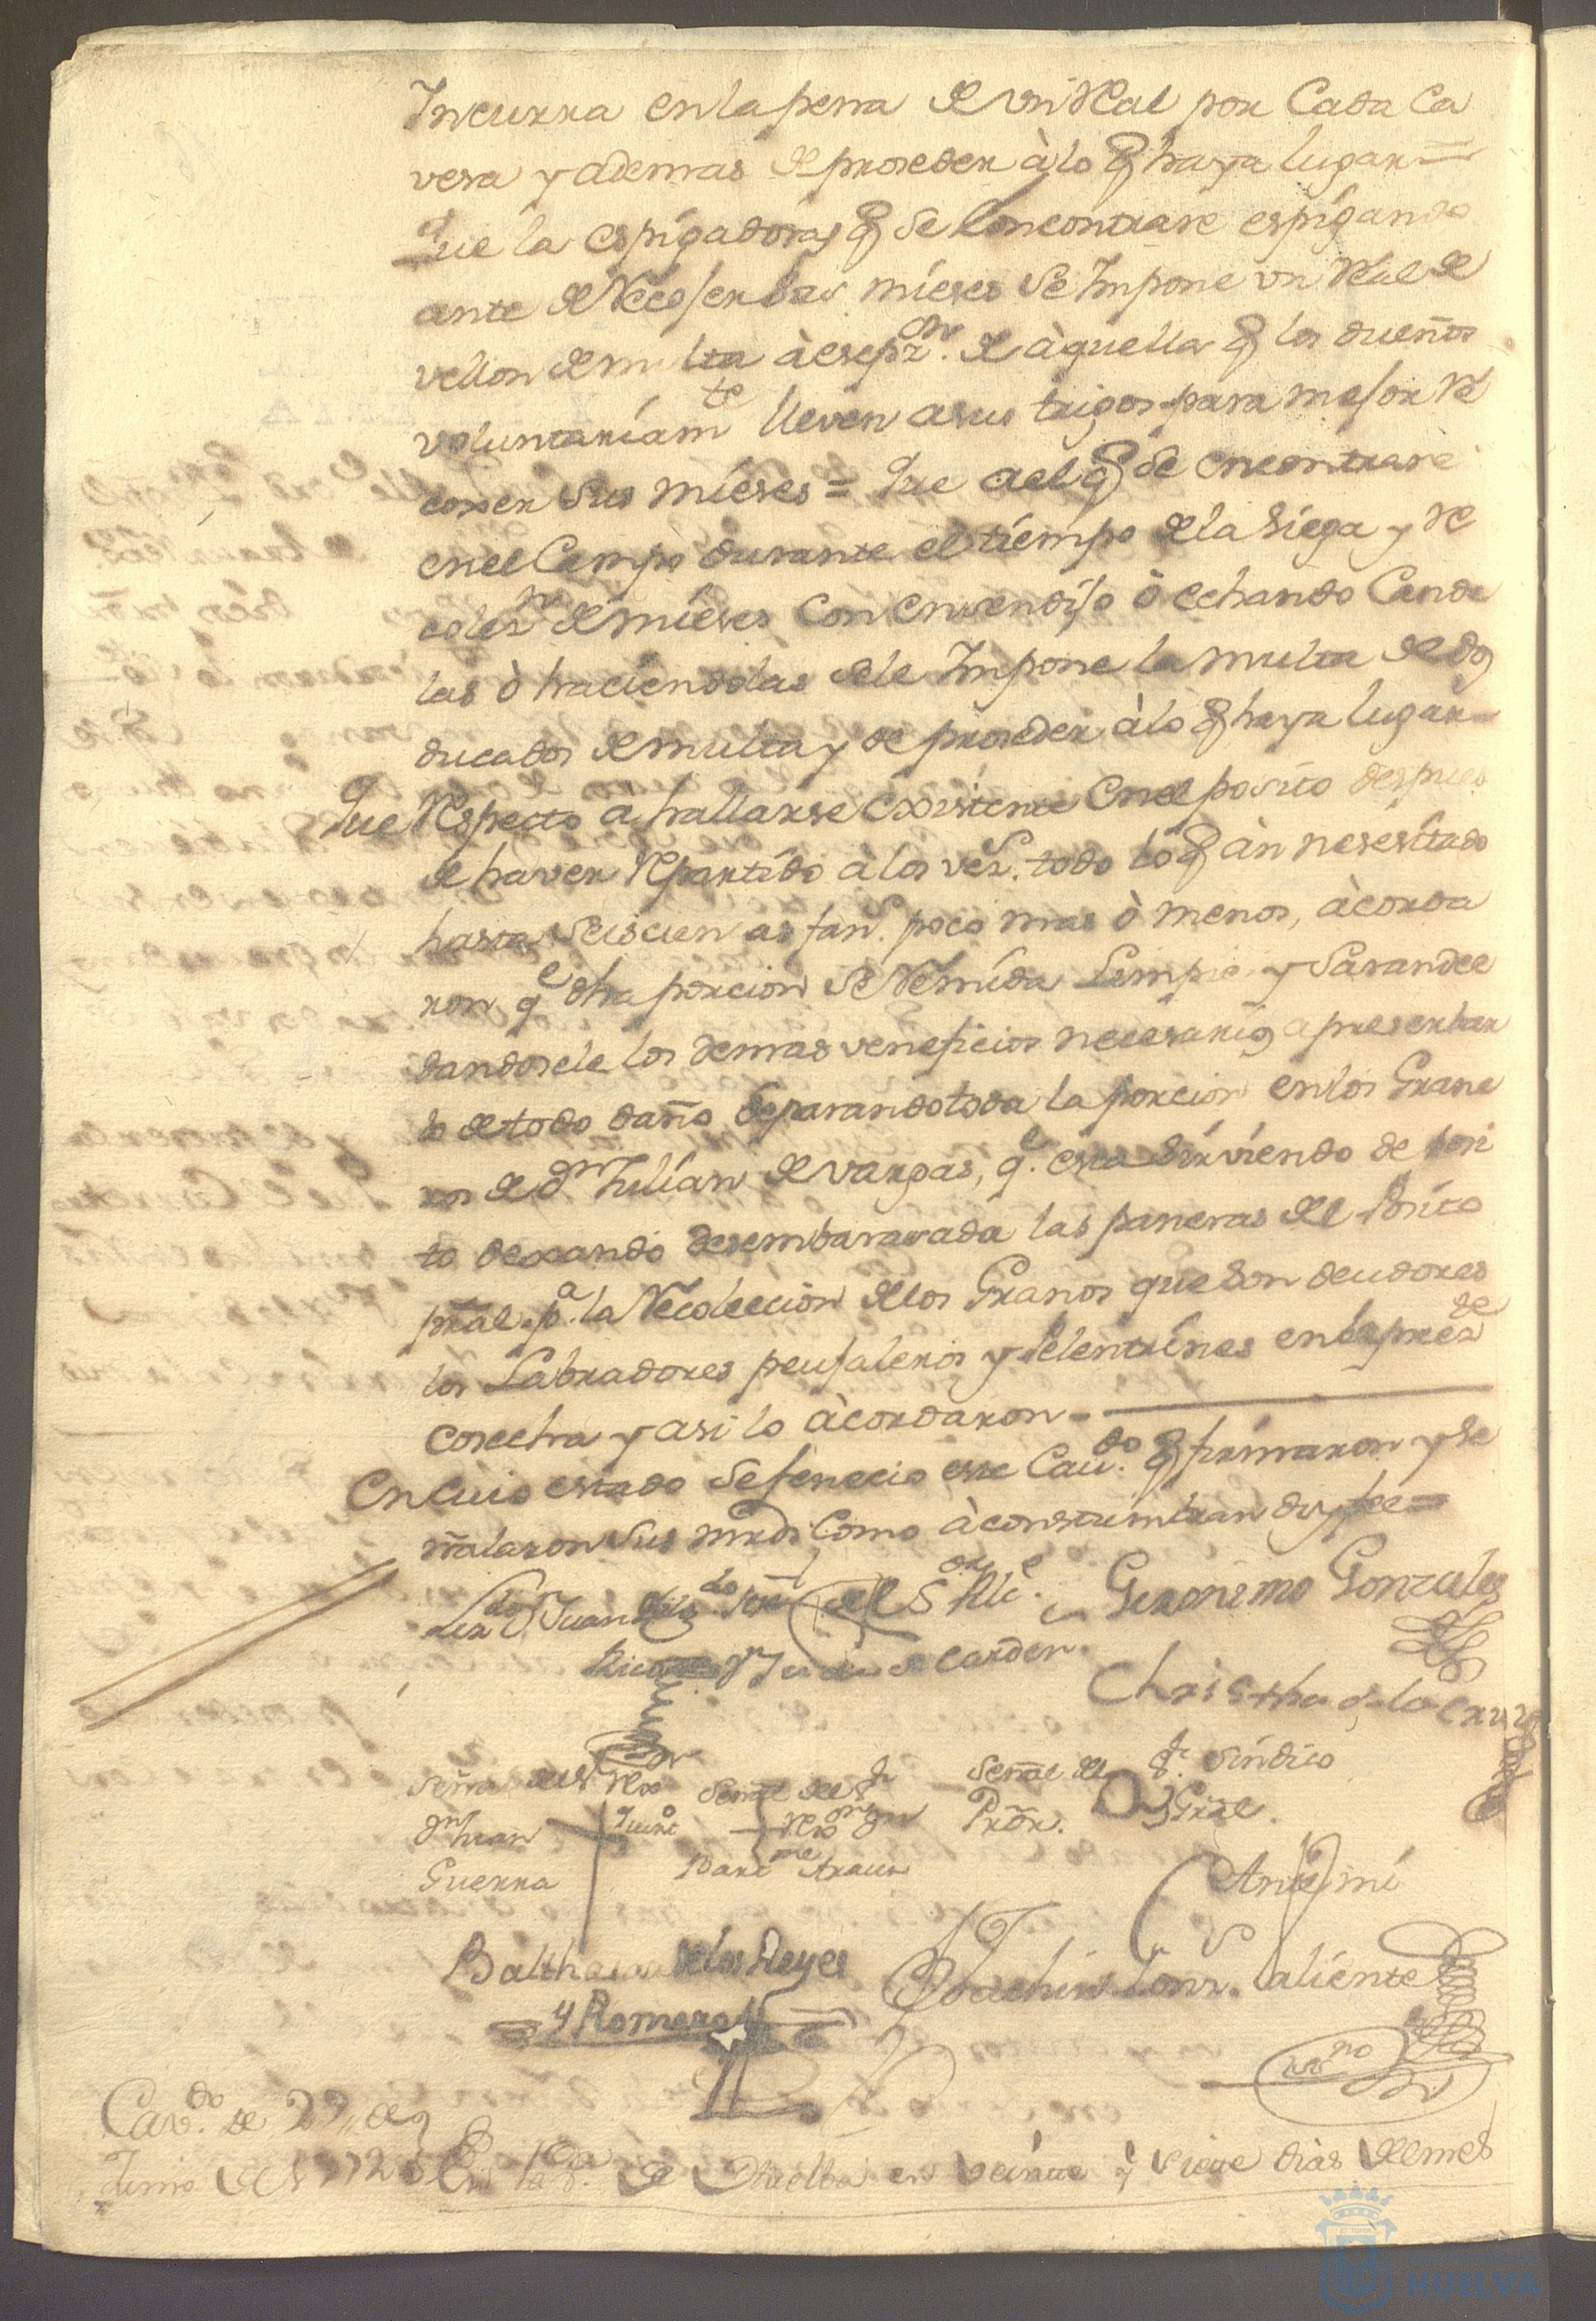 Incurra enlapena de Vn Real por Cada Ca
vesa y ademas de proseder à lo q haya lugar =
Que la espigadoras q se Encontrare espigando
ante de Recojer las mieses se Impone vn Real de
vellon de multa à esepz.on de àquella q los dueños
voluntariam.te lleven asus trigos para mejor Re
coxer Sus mieses = Que ael q se encontrare
enel Campo durante el tiempo de la Siega y Re
colez.n de mieses Con ensendijo ò echando Cande
las ò haciendolas sele Impone la multa de dos
ducados de multa y de proseder àlo q haya lugar =
Que Respecto à hallarse existente enel posito despues
de haver Repartido à los vez.s todo lo q àn nesesitado
hasta Seiscien as fan.s poco mas ò menos, àcorda
ron q.e dha porcion se Remida Limpie y Sarandee
dandosele los demas veneficios necesarios a preserbar
lo de todo daño, Separando toda la porcion en los Grane
ros de D.n Julian de Vargas, q.e esta Sirviendo de posi
to dexando desembarasada las paneras del Posito
pral. p.a la Recoleccion de los Granos que son deudores
los Labradores peujaleros y Pelentrines en la prez.te
cosecha y asi lo àcordaron =
En cuio estado se fenecio este Cav.do q firmaron y se
ñalaron Sus mrds Como àcostumbran doy fee =
Liz.do D. Juan
del S.or Alc.e
Geronimo Gonzales
de Carden.s
Christoba de la Cruz
Señal del S.r Rex
Señal del S.r
Señal del S.r Sindico
D.n Juan
Rex.or D.n
Pror. Gral.
Guerra
Bar.me Arauz
Ante mi
Balthasar de los Reyes
Joachin Gonz. Valiente
y Romero
ess.no
Cav.do de 27,, de
Junio de 1772
En la V.a de Huelba en veinte y Siete dias del mes
HUELVA